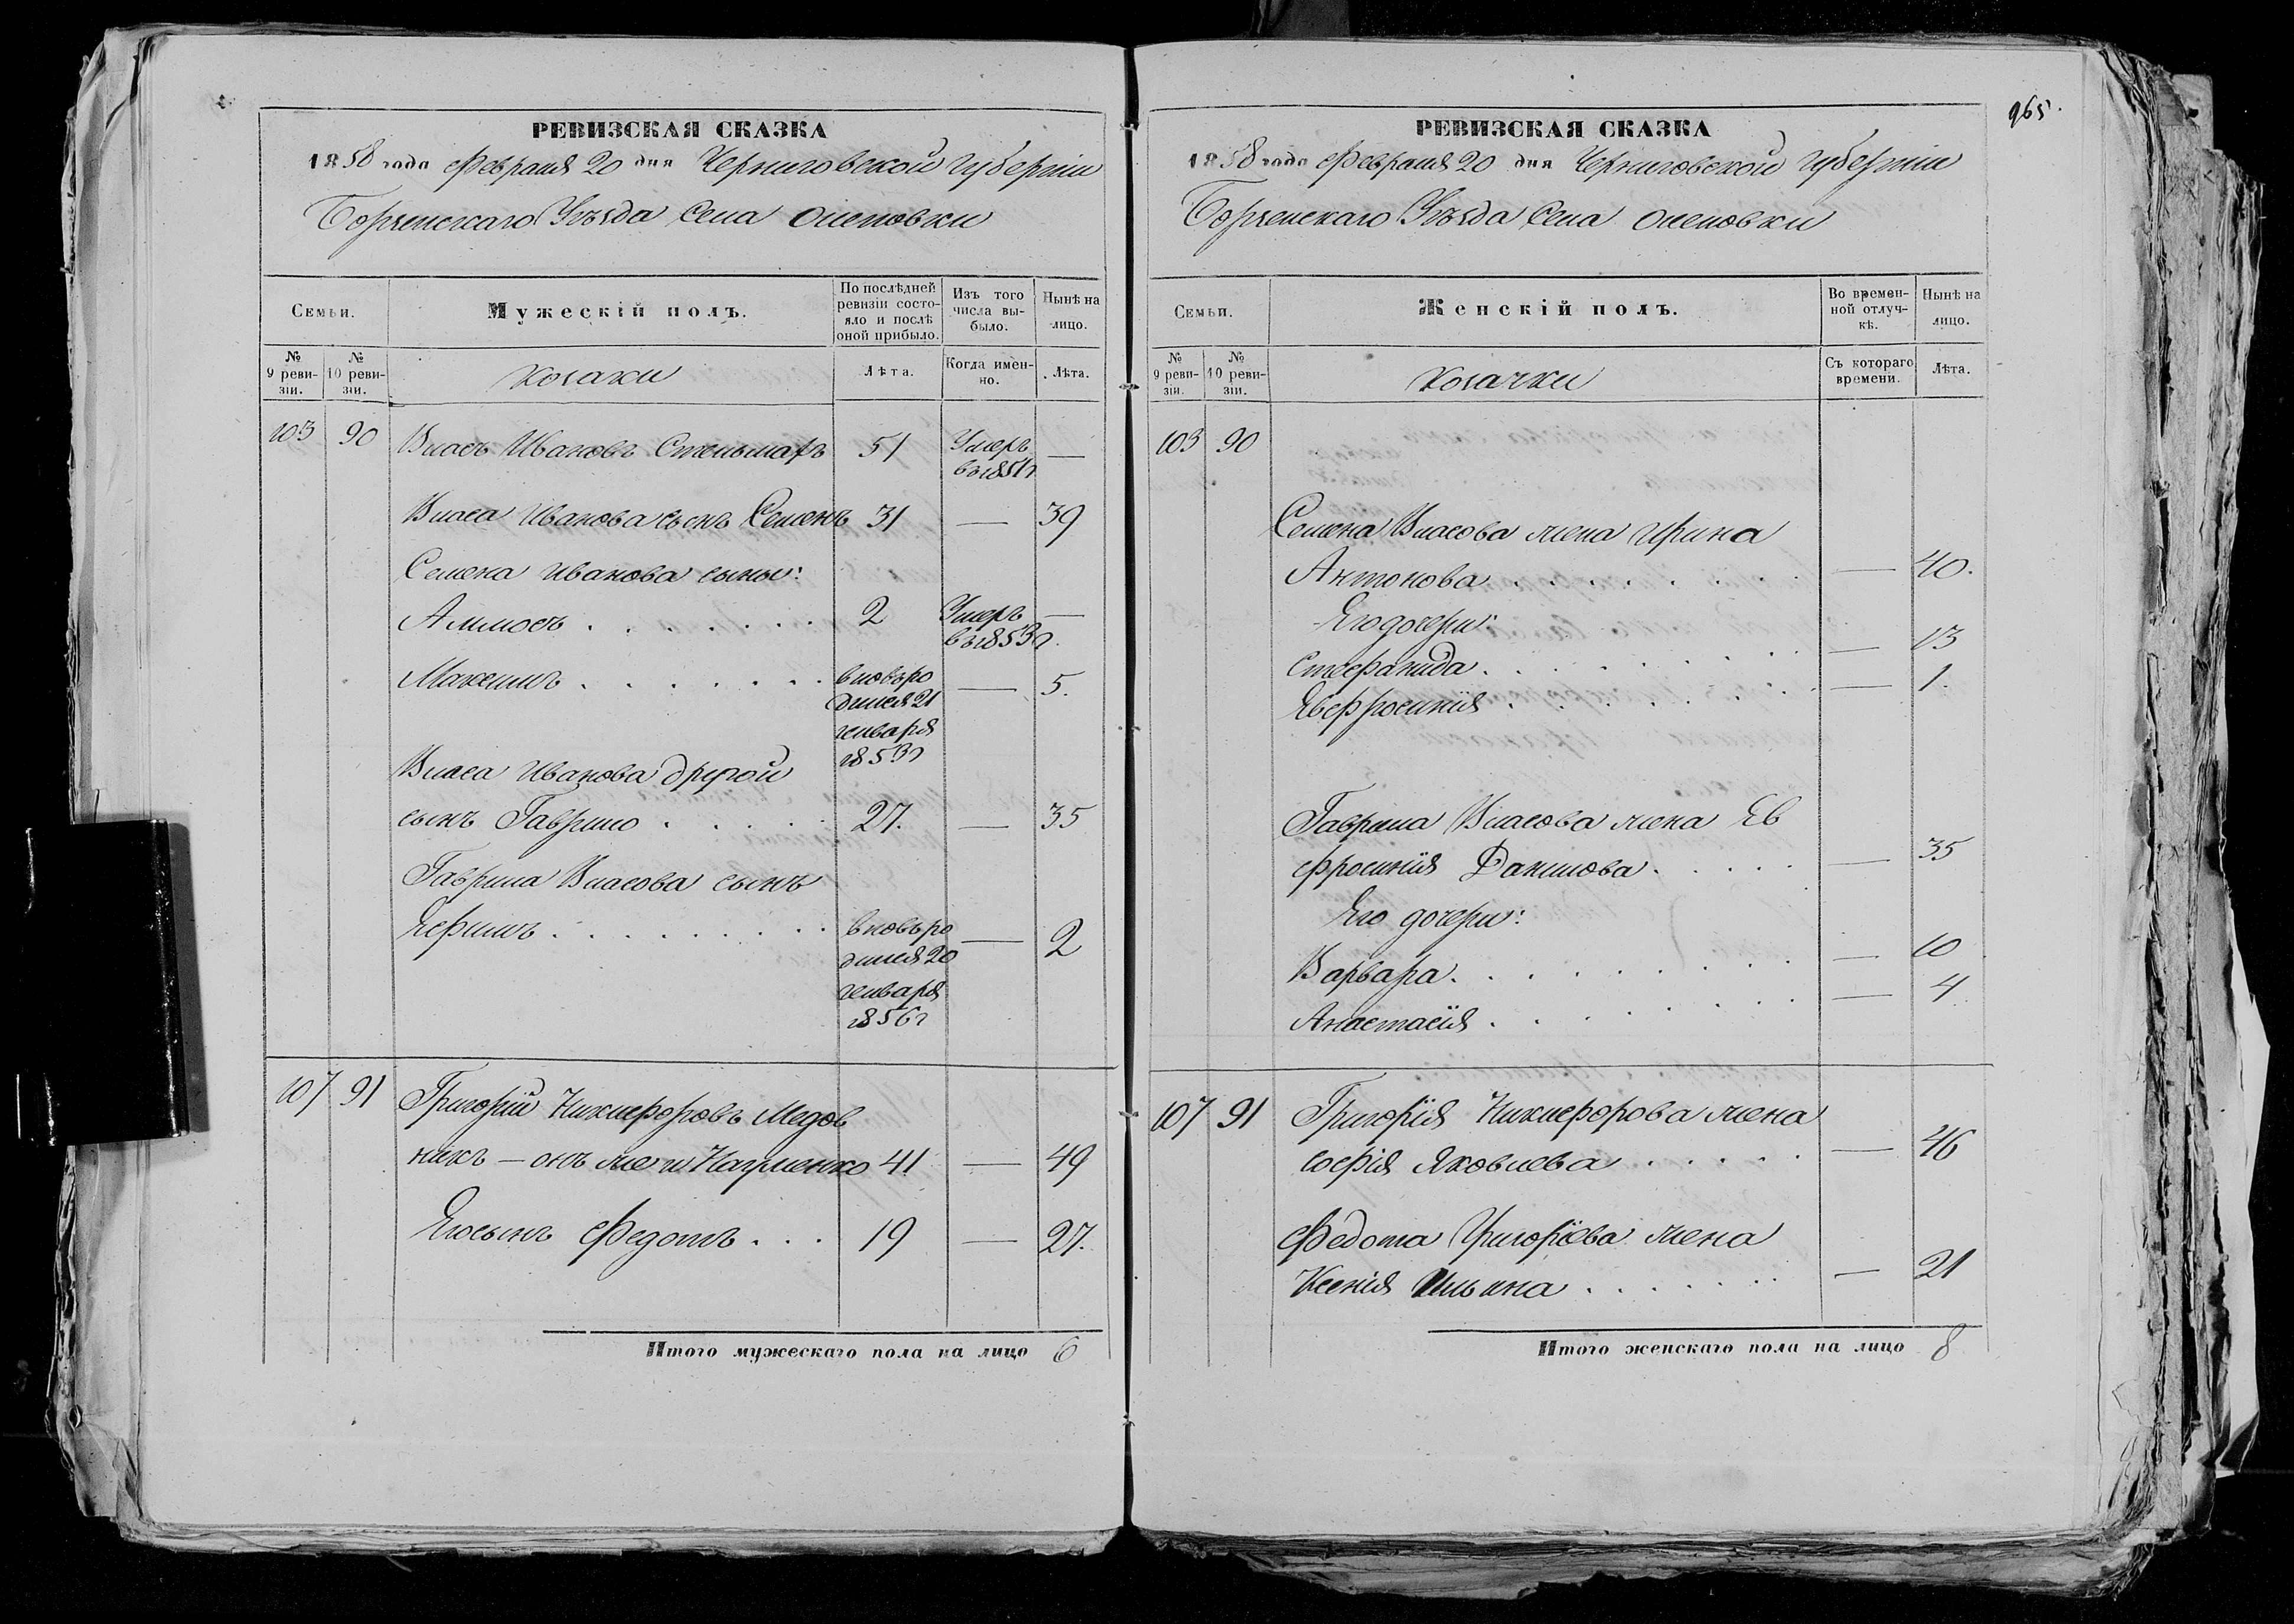 РЕВИЗСКАЯ СКАЗКА
1858 года Февраля 20 дня Черниговской Губерніи
Борзенскаго Уѣзда Села Оленовки
Семьи.
Мужескій полъ.
По послѣдней ревизіи состояло и послѣ оной прибыло.
Изъ того числа выбыло.
Нынѣ на лицо.
№ 9 ревизіи.
№ 10 ревизіи.
козаки
Лѣта.
Когда именно.
Лѣта.
103 90 Власъ Ивановъ Стельмахъ 51 Умеръ —
въ 1851г
Власа Иванова сынъ Семенъ 31 — 39
Семена Иванова сыны:
Аммосъ . . . . . . . 2 Умеръ —
въ 1853г.
Максимъ . . . . . . . вновь ро — 5.
дился 21
генваря
1853г
Власа Иванова другой
сынъ Гаврило . . . . . 27. — 35
Гаврила Власова сынъ
Ефимъ . . . . . . . . . вновь ро — 2
дился 20
генваря
1856г
107 91 Григорій Никифоровъ Медов
никъ — онъ же и Науменко 41 — 49
Его сынъ Федотъ . . . 19 — 27.
Итого мужескаго пола на лицо 6
965.
РЕВИЗСКАЯ СКАЗКА
1858 года Февраля 20 дня Черниговской Губерніи
Борзенскаго Уѣзда Села Оленовки
Семьи.
Женскій полъ.
Во временной отлучкѣ.
Нынѣ на лицо.
№ 9 ревизіи.
№ 10 ревизіи.
козачки
Съ котораго времени.
Лѣта.
103 90
Семена Власова жена Ирина
Антонова . . . . . . . . — 40.
Его дочери:
Стефанида . . . . . . . . — 13
Евфросинія . . . . . . . . — 1.
Гаврила Власова жена Ев
фросинія Данилова . . . . . — 35
Его дочери:
Варвара . . . . . . . . — 10
Анастасія . . . . . . . — 4
107 91 Григорія Никифорова жена
софія Яковлева . . . . . — 46
Федота Григоріева жена
Ксенія Ильина . . . . . . — 21
Итого женскаго пола на лицо 8